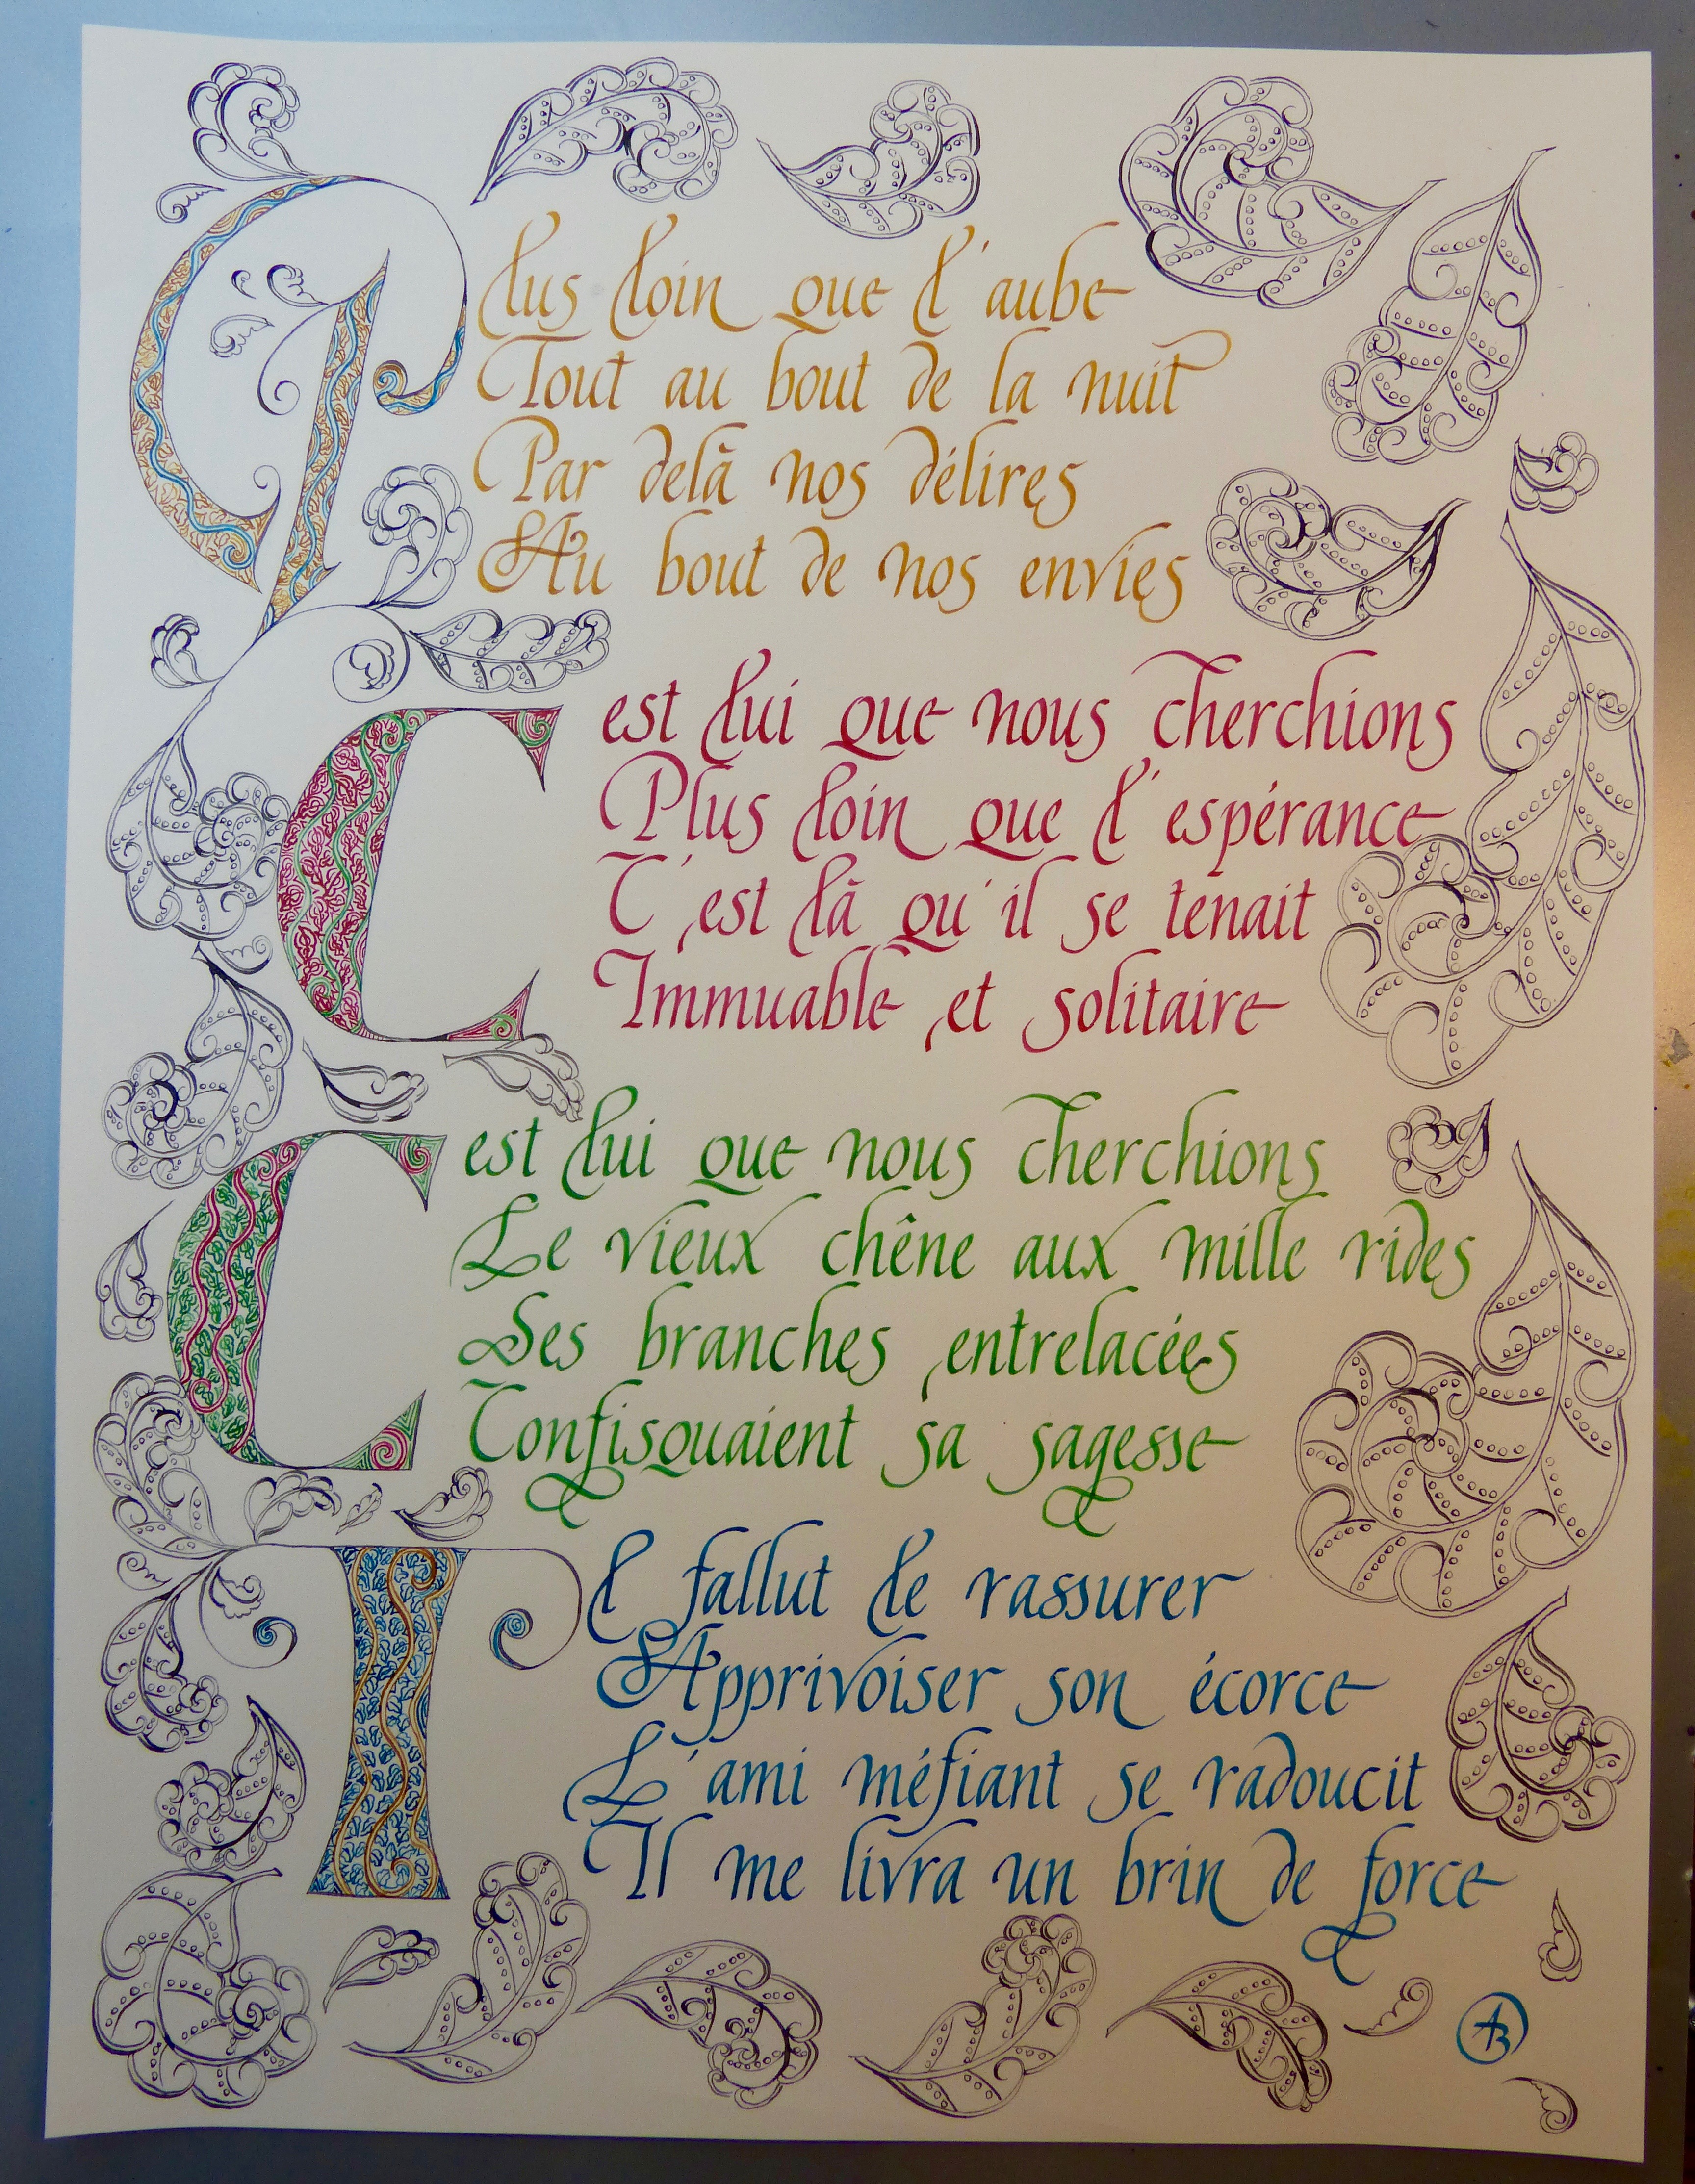 Plus loin que l'aube
Tout au bout de la nuit
Par delà nos délires
Au bout de nos envies
C est lui que nous cherchions
Plus loin que l'espérance
C'est là qu'il se tenait
Immuable et solitaire
C est lui que nous cherchions
Le vieux chêne aux mille rides
Ses branches entrelacées
Confisquaient sa sagesse
Il fallut le rassurer
Apprivoiser son écorce
L'ami méfiant se radoucit
Il me livra un brin de force
AB